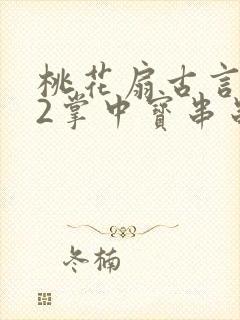 桃花扇古言
2掌中寶串
冬楠